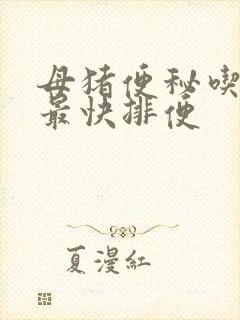 母猪便秘喫
最快排便
夏漫紅